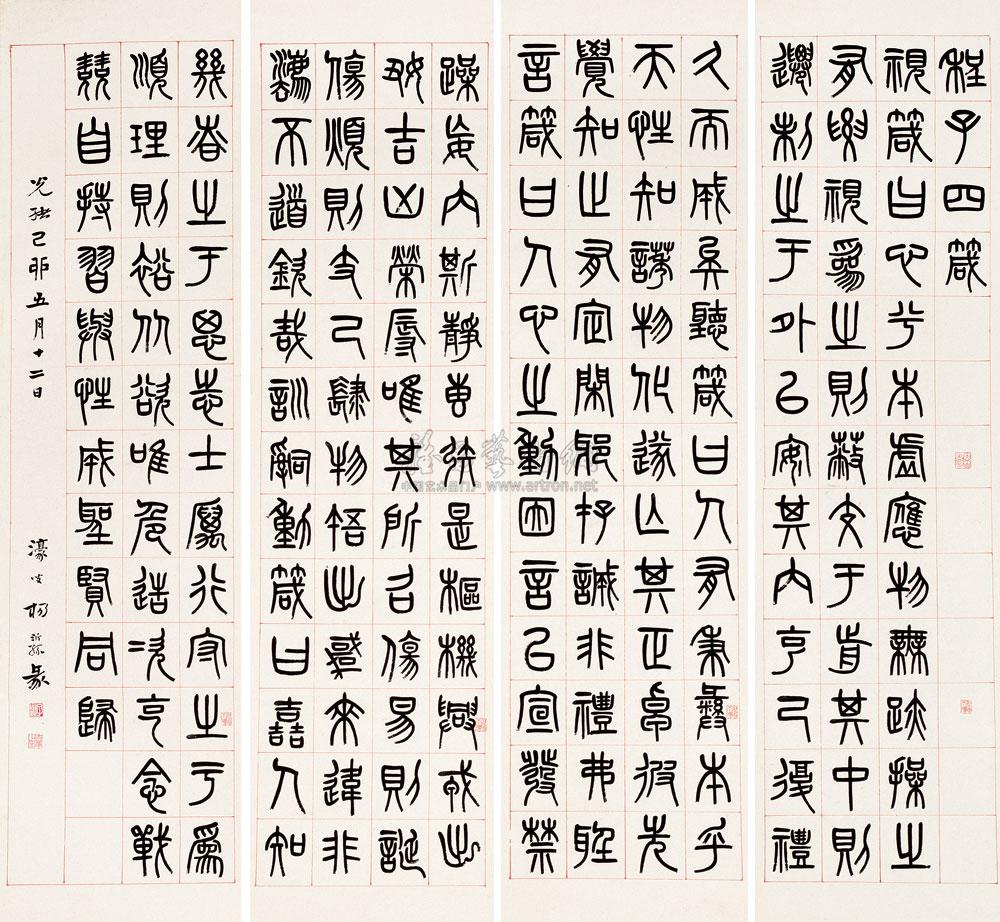 程子四箴
視箴曰心兮本虛應物無跡操之
有要視為之則蔽交于前其中則
遷制之于外以安其內克己復禮
久而誠矣聽箴曰人有秉彝本乎
天性知誘物化遂亡其正卓彼先
覺知止有定閑邪存誠非禮弗聽
言箴曰人心之動因言以宣發禁
躁妄內斯靜專矧是樞機興戎出
好吉凶榮辱唯其所召傷易則誕
傷煩則支己肆物牾出悖來違非
灋不道欽哉訓辭動箴曰嚞人知
幾誠之于思志士厲行守之于為
順理則裕从欲唯危造次克念戰
兢自持習與性成聖賢同歸
光緒己卯五月十二日
濠叟楊沂孫篆
www.artron.net